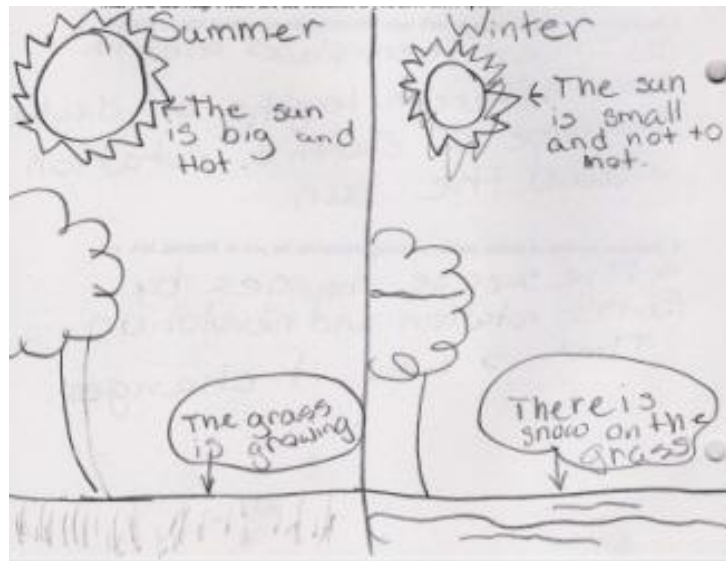 Summer
The sun
is big and
Hot
The grass
is growing
Winter
The sun
is small
and not to
hot.
There is
snow on the
grass